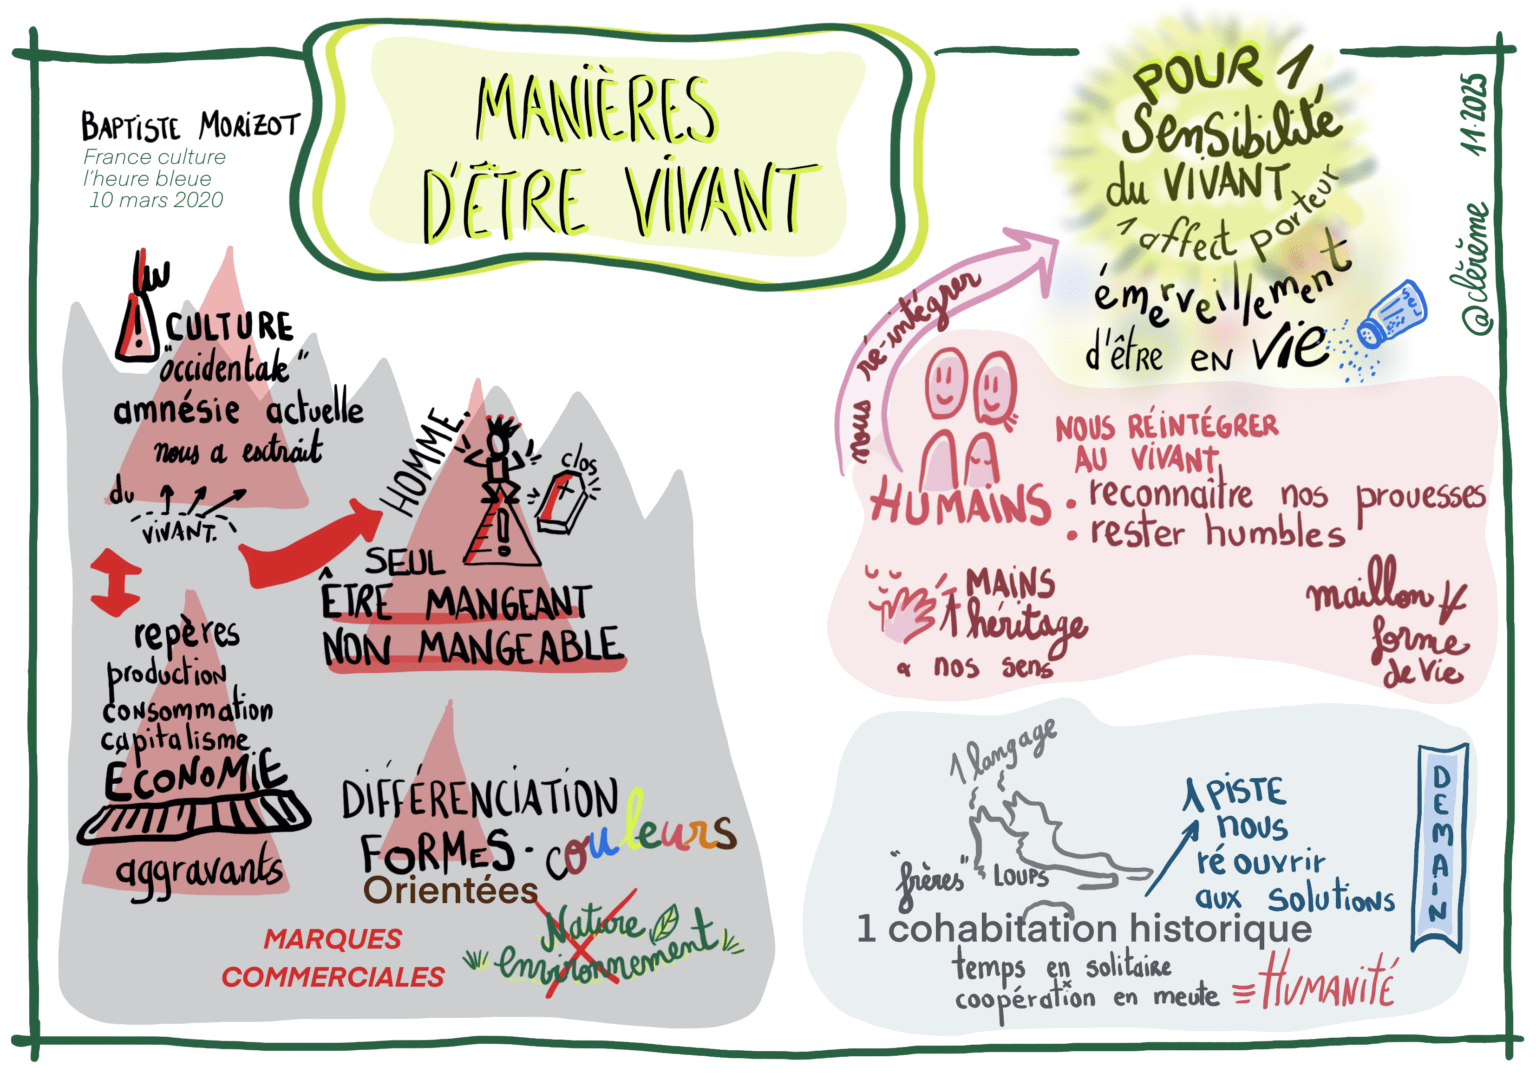 MANIÈRES
D'ÊTRE VIVANT
BAPTISTE MORIZOT
France culture
l'heure bleue
10 mars 2020
CULTURE
"occidentale"
amnésie actuelle
nous a extrait
du
VIVANT.
repères
production
consommation
capitalisme
ÉCONOMIE
aggravants
HOMME.
clos
SEUL
ÊTRE MANGEANT
NON MANGEABLE
DIFFÉRENCIATION
FORMES - couleurs
Orientées
MARQUES
COMMERCIALES
Nature
environnement
POUR 1
Sensibilité
du VIVANT
1 affect porteur
émerveillement
d'être EN VIE
SEL
@clérème 11.2025
nous ré-intégrer
HUMAINS
NOUS RÉINTÉGRER
AU VIVANT
• reconnaître nos prouesses
• rester humbles
MAINS
1 héritage
& nos sens
maillon
forme
de Vie
1 langage
"frères" LOUPS
1 PISTE
nous
ré ouvrir
aux solutions
1 cohabitation historique
temps en solitaire
coopération en meute = HUMANITÉ
DEMAIN